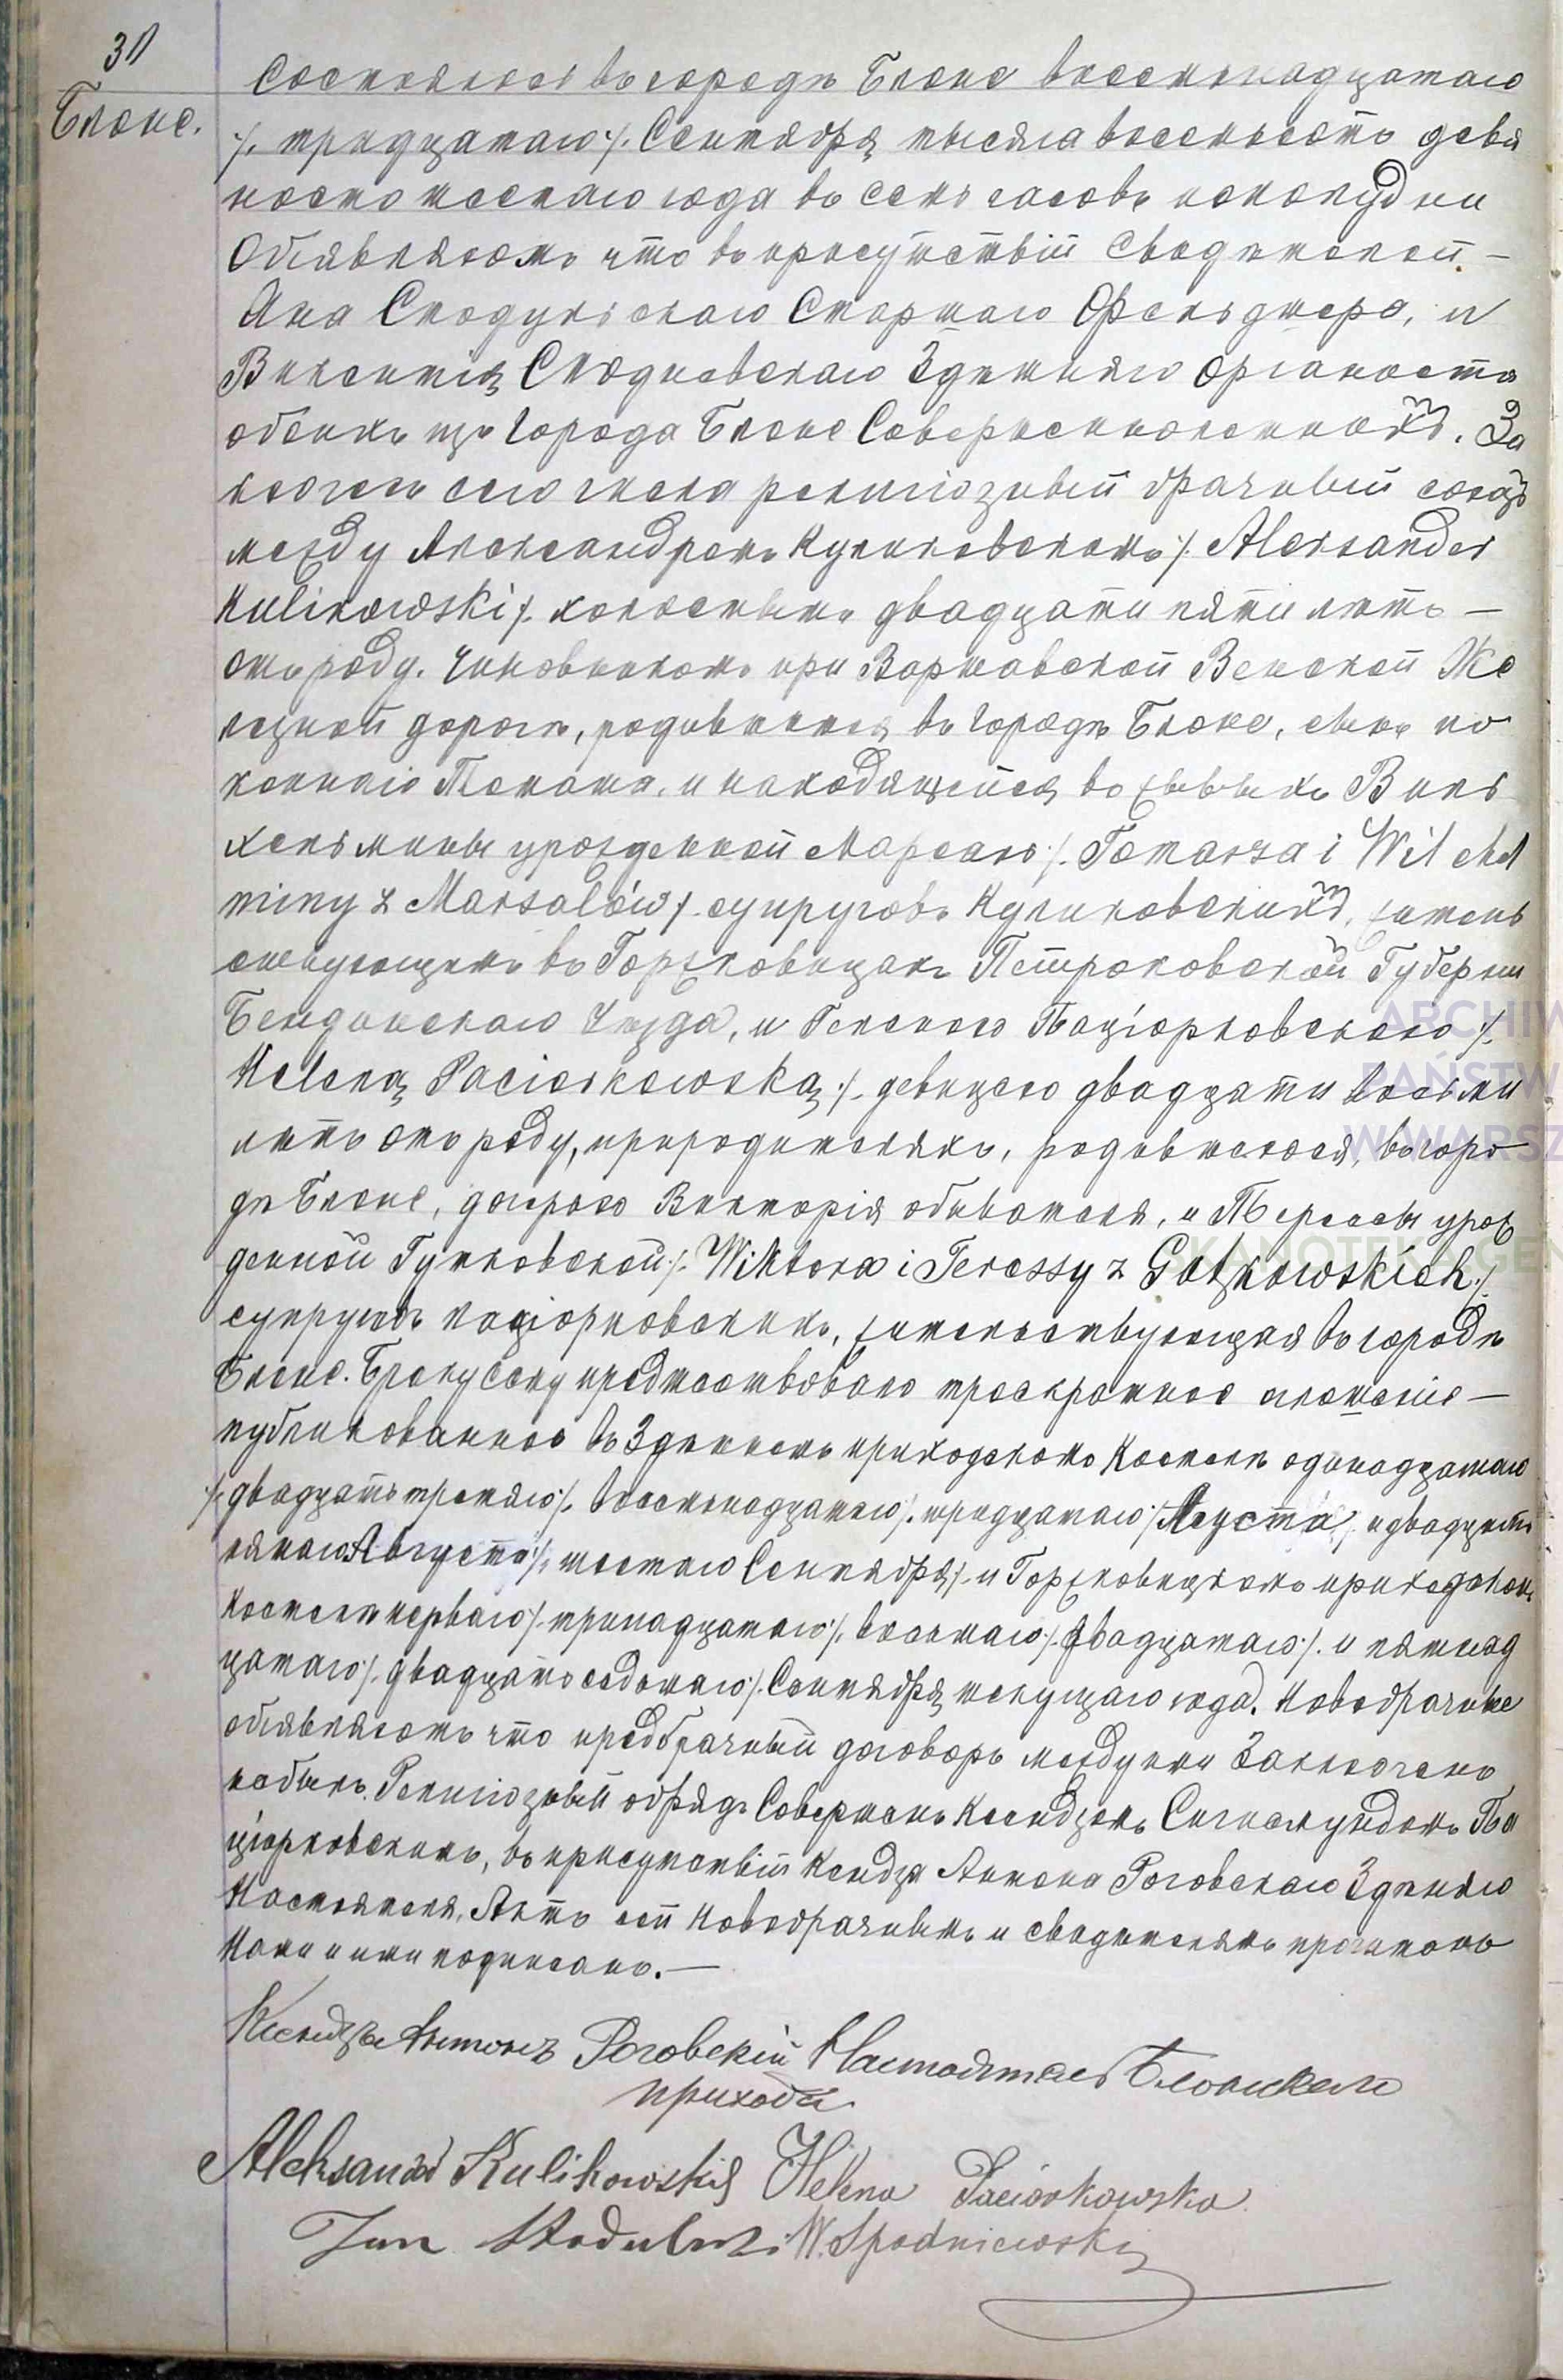 31
Блоне.
Состоялось въ городѣ Блоне восемьнадцатаго
/. тридцатаго ./. Сентября тысяча восемьсотъ девя
носто шестаго года въ семь часовъ пополудни
Объявляемъ что въ присутствіи Свидѣтелей —
Яна Стодульскаго Старшаго Фельджера, и
Викентія Сподневскаго Здѣшняго Органиста
обеихъ изъ Города Блоне Совершеннолетнихъ. За
ключенъ сего числа религіозный брачный союзъ
между Александромъ Куликовскомъ ./. Alexsander
Kulikowski ./. холостымъ двадцати пяти лѣтъ —
отъ роду. Чиновникомъ при Варшавской Венской Же
лезной дороги, родившимся въ Городѣ Блоне, сынъ по
койнаго Томаша, и находящейся въ живыхъ Виль
хельмины урожденной Марсаль ./. Tomasza i Wilchel
miny z Marsalów ./. супруговъ Куликовскихъ, житель
ствующимъ въ Горжковицахъ Петроковской Губерніи
Бендинскаго Уѣзда, и Геленою Паціорковскою ./.
Heleną Paciorkowską ./. девицею двадцати восьми
лѣтъ отъ роду, при родителяхъ, родившеюся, въ горо
дѣ Блоне, дочерью Викторія обывателя, и Терессы урож
денной Гутковской ./. Wiktora i Teressy z Gutkowskich ./.
супруговъ Паціорковскихъ, жительствующая въ городѣ
Блоне. Браку сему предшествовало троекратное оглошеніе —
публикованное въ Здѣшнемъ приходскомъ Костелѣ одинадцатаго
/. двадцать третяго ./. восемьнадцатаго ./. тридцатаго ./. Августа, и двадцать
пятаго Августа ./. шестаго Сентября ./. и Горжковицкомъ приходскомъ
Костелѣ перваго ./. тринадцатаго ./. восьмаго ./. двадцатаго ./. и пятнад
цатаго ./. двадцать седьмаго ./. Сентября текущаго года. Новобрачные
объявляютъ что предбрачный договоръ между ими Заключенъ
небылъ. Религіозный обрядъ Совершенъ Ксендзомъ Сигисмундомъ Па
ціорковскимъ, въ присутствіи Ксендза Антона Роговскаго Здѣшняго
Настоятеля. Актъ сей Новобрачнымъ и свидѣтелямъ прочитанъ
Нами и ими подписанъ. —
Ксендзъ Антонъ Роговскій Настоятель Блонскаго
прихода
Aleksander Kulikowski Helena Paciorkowska
Jan Stodulski W. Spodniewski
ARCHIW
PAŃSTW
W WARSZ
SKANOTEKA GEN